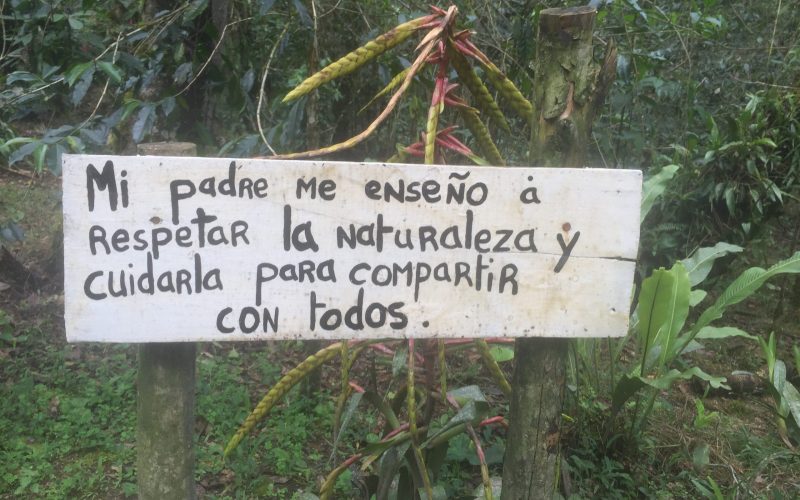 Mi padre me enseño à
respetar la naturaleza y
cuidarla para compartir
con todos.